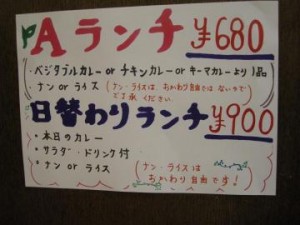 Aランチ ¥680
・ベジタブルカレー or チキンカレー or キーマカレーより1品
・ナン or ライス (ナン・ライスは、おかわり自由ではないので
ご了承ください。)
日替わりランチ ¥900
・本日のカレー
・サラダ・ドリンク付
・ナン or ライス (ナン・ライスは
おかわり自由です!)